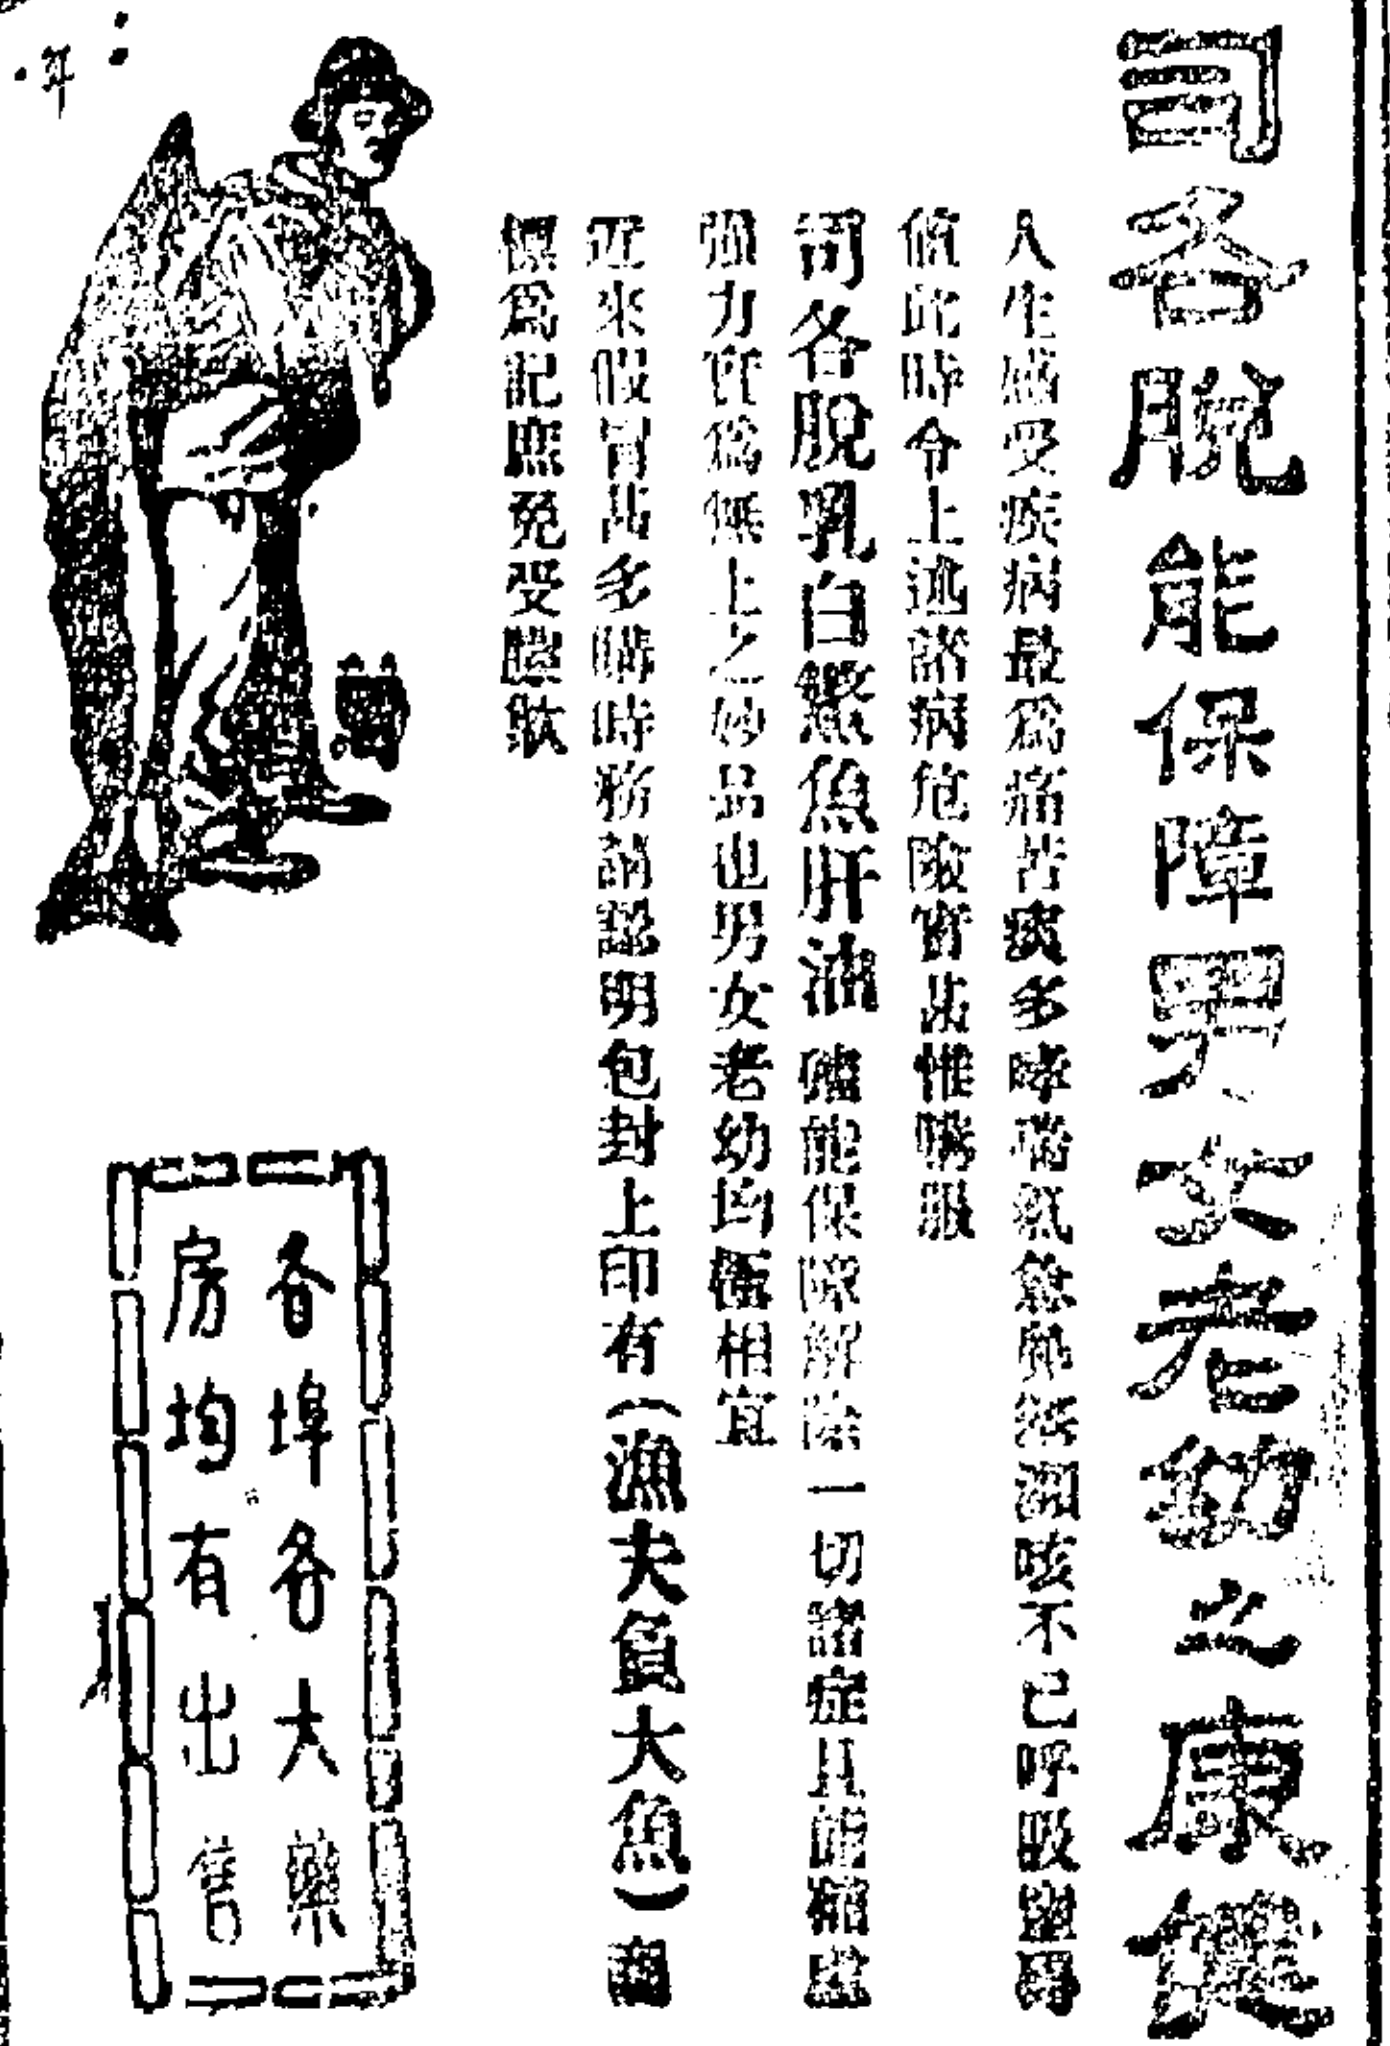 司各脫能保障男女老幼之康健
人生感受疾病最爲痛苦痰多哮喘氣急鼻塞潤咳不已呼吸窒礙
値此時令上述諸病危險實甚惟購服
司各脫乳白鰵魚肝油 確能保障解除一切諸症且能補虛
強力實爲無上之妙品也男女老幼均極相宜
近來假冒甚多購時務請認明包封上印有(漁夫負大魚)商
標爲記庶免受騙欵
各埠各大藥
房均有出售
年